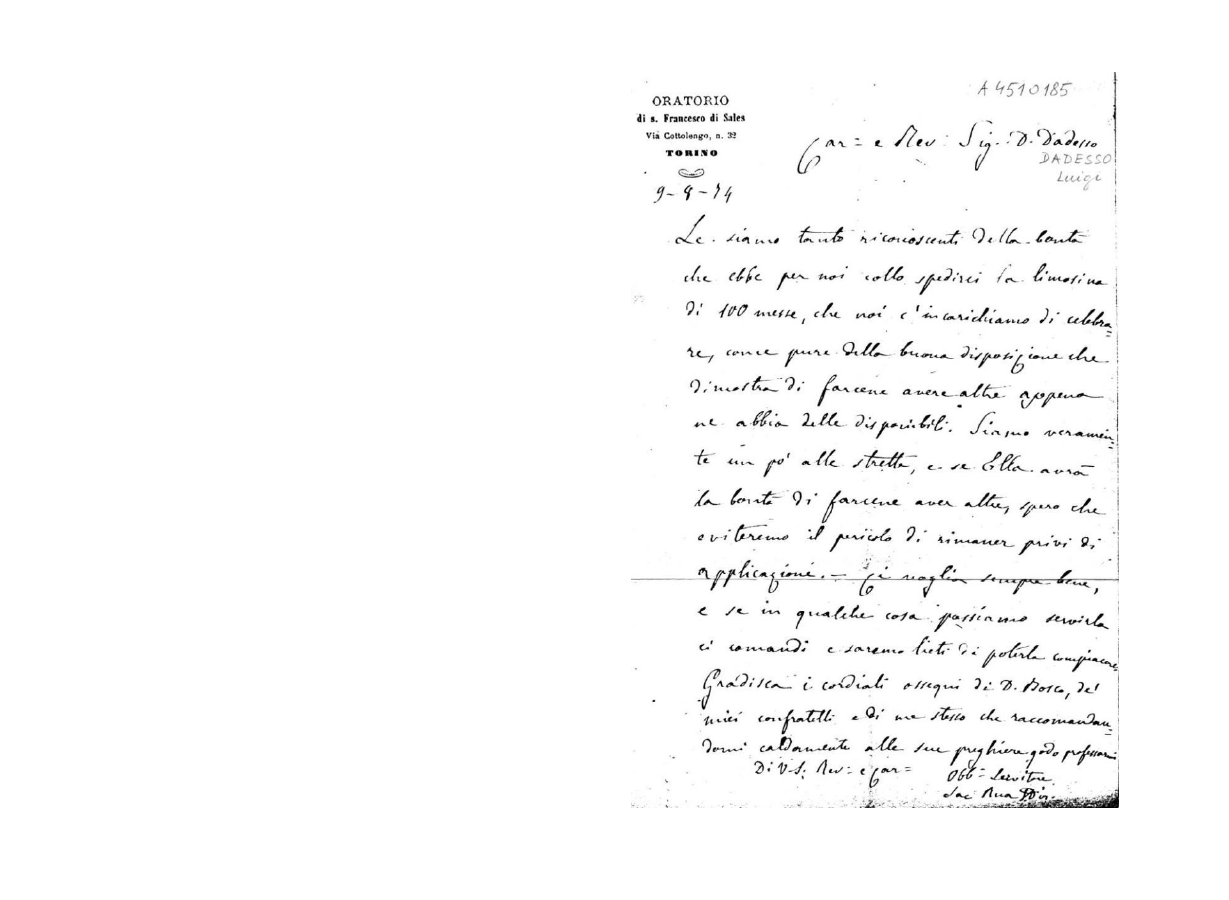 A4510185
ORATORIO
di s. Francesco di Sales
Via Cottolengo, n. 32
TORINO
Car= e Rev: Sig. D. Dadesso
DADESSO
Luigi
9-8-74
Le siamo tanto riconoscenti della bontà
che ebbe per noi collo spedirci la limosina
di 100 messe, che noi c'incarichiamo di celebra=
re, come pure della buona disposizione che
dimostra di farcene avere altre appena
ne abbia delle disponibili. Siamo veramen=
te un po' alle strette, e se Ella avrà
la bontà di farcene aver altre, spero che
eviteremo il pericolo di rimaner privi di
applicazioni. — Ci voglia sempre bene,
e se in qualche cosa possiamo servirla
ci comandi e saremo lieti di poterla compiacere
Gradisca i cordiali ossequi di D. Bosco, de'
miei confratelli e di me stesso che raccomandan=
domi caldamente alle sue preghiere godo professarmi
Di V. S. Rev= e Car=
Obb= Servitore
Sac Rua Dir.